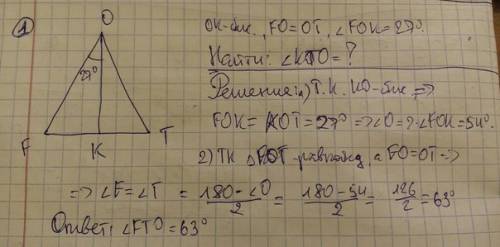 1
O
27°
F
K
T
OK-бис., FO=OT, ∠FOK=27°.
Найти: ∠KTO=?
Решение: 1) Т.К. KO-бис =>
FOK=KOT=27° => ∠O=2·∠FOK=54°.
2) ТК △FOT-равнобед, а FO=OT =>
=> ∠F=∠T = 180-∠O / 2 = 180-54 / 2 = 126 / 2 = 63°
Ответ: ∠FTO=63°